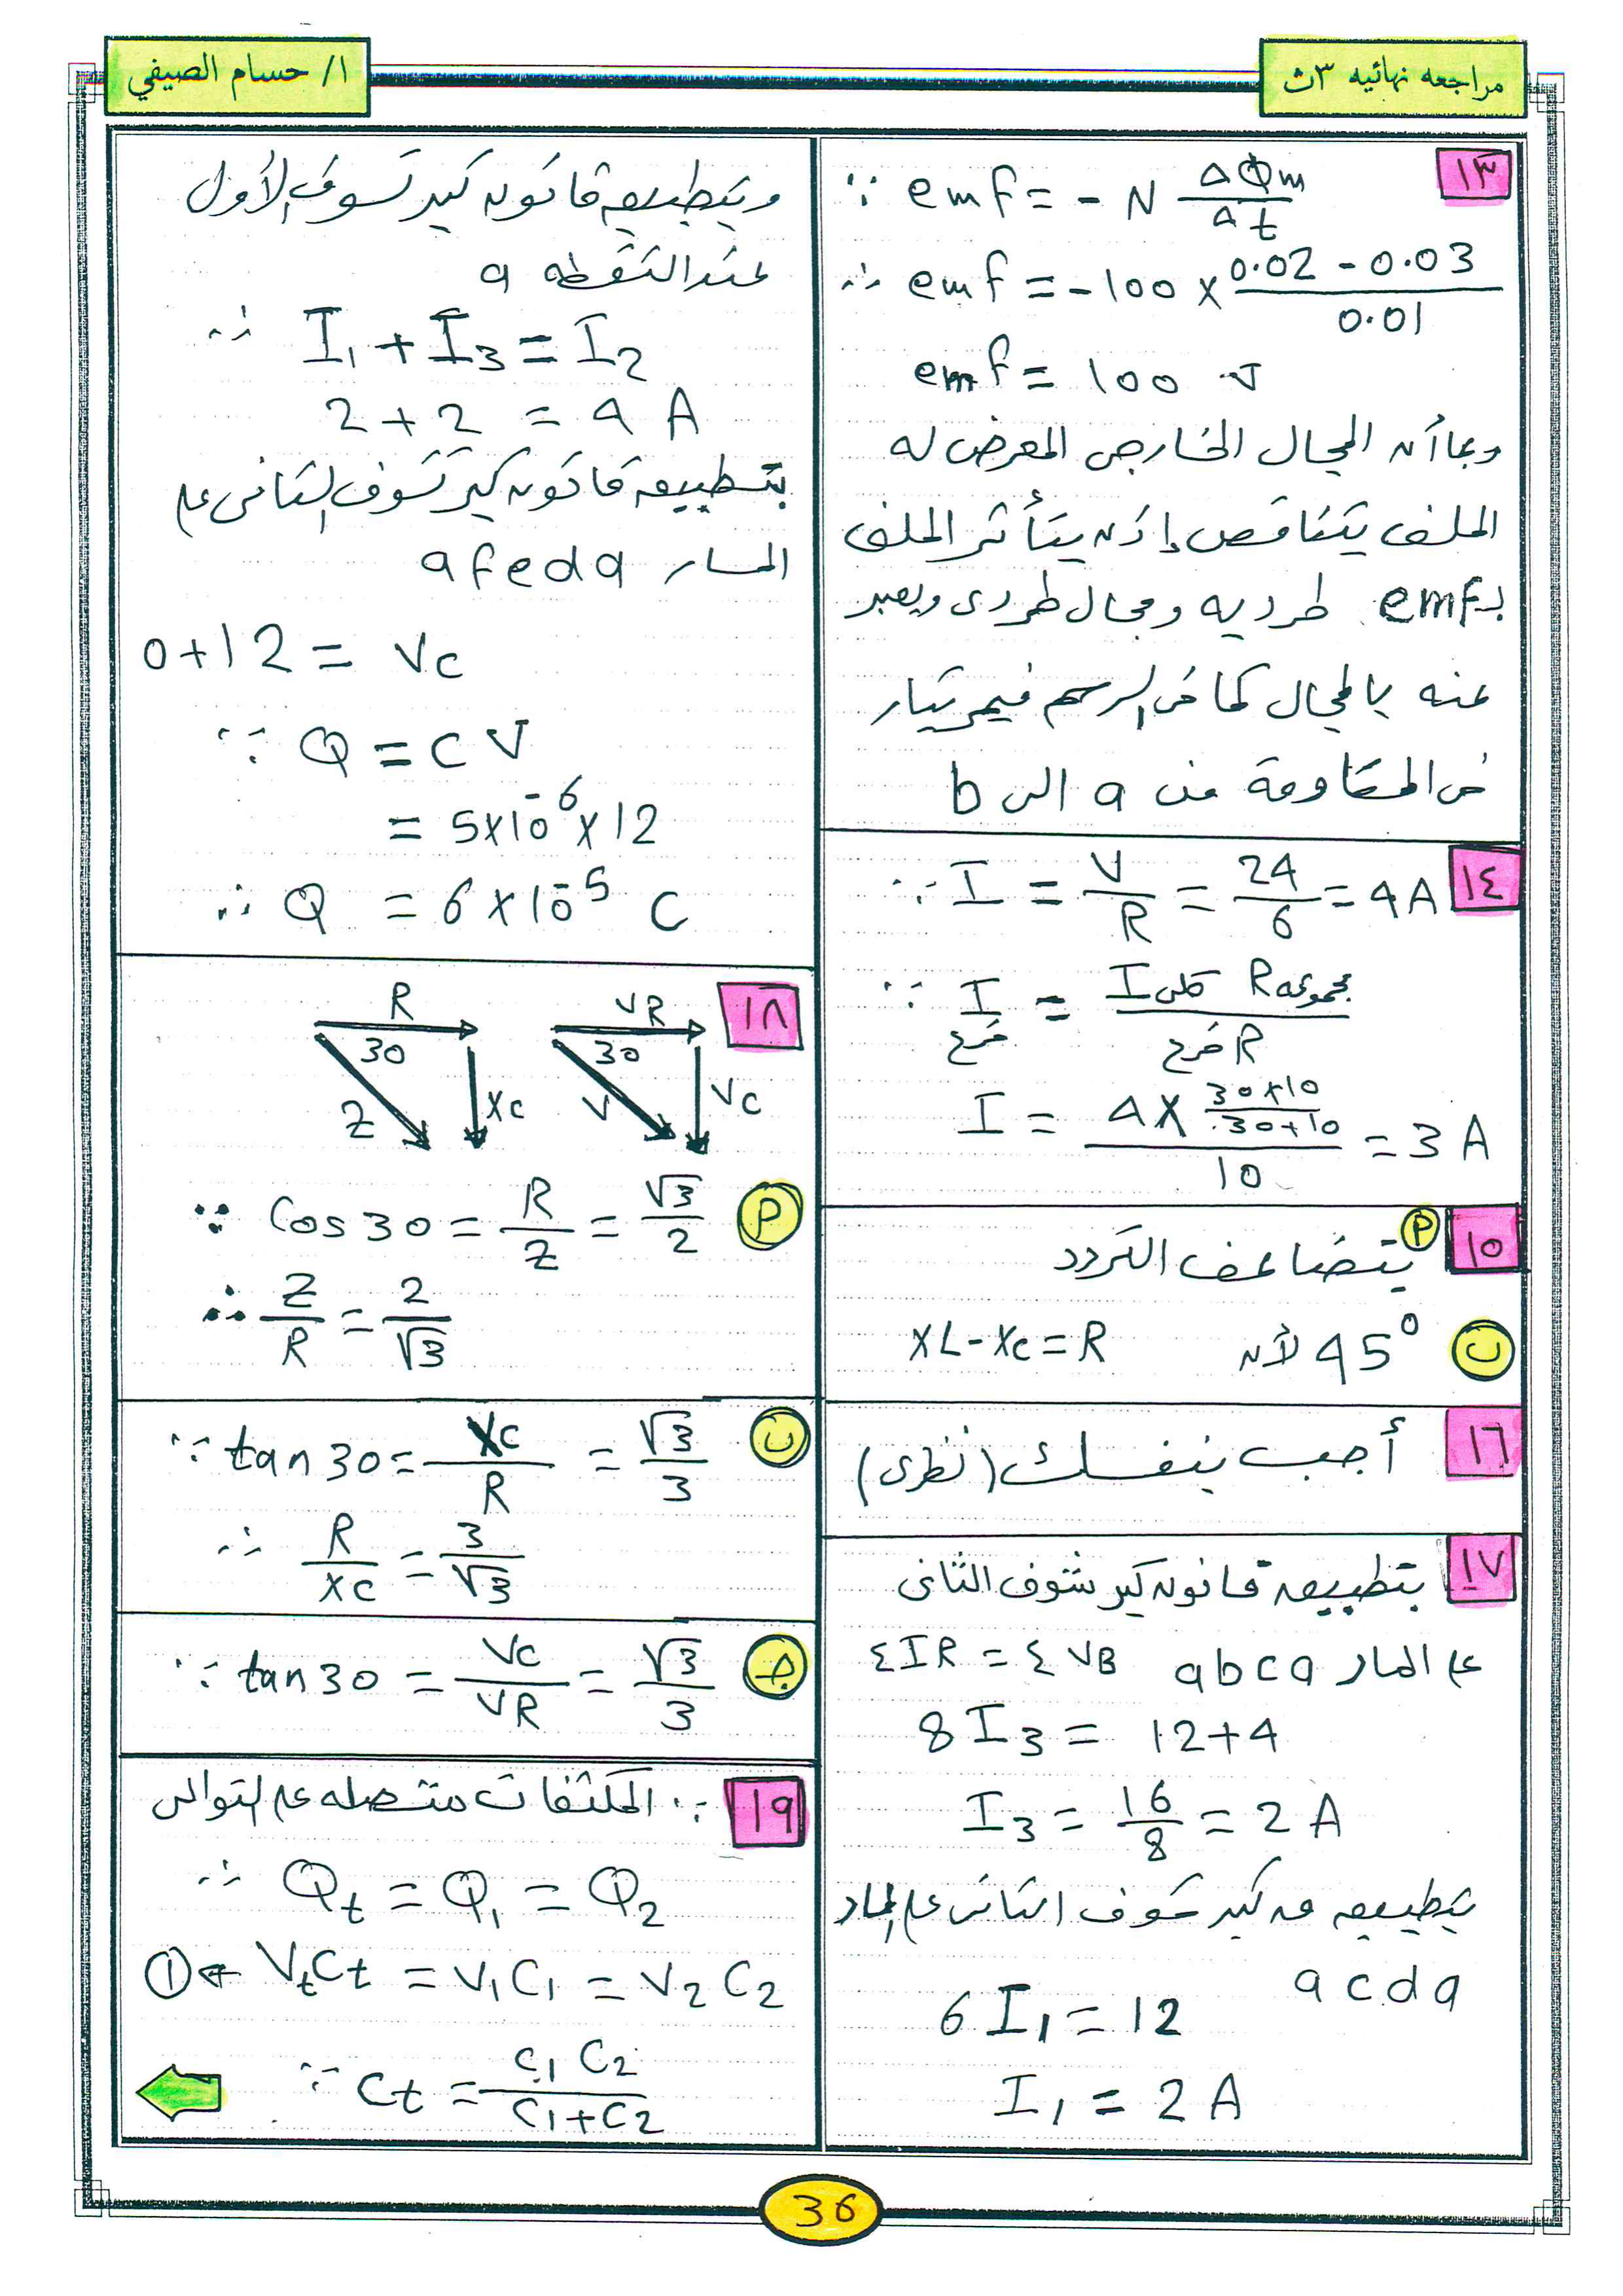 مراجعه نهائيه ٣ث
ا/ حسام الصيفي
١٣
∵ emf = - N ΔΦm / Δt
∴ emf = -100 × (0.02 - 0.03) / 0.01
emf = 100 v
وبما أن المجال الخارجى المعرض له
الملف يتناقص إذن يتأثر الملف
بـ emf طرديه ومجال طردى ويعبر
عنه بالمجال كما فى الرسم فيمر تيار
فى المقاومة من a الى b
١٤
∵ I = V / R = 24 / 6 = 4 A
∵ I فرع = I كلى R مجموعه / R فرع
I = 4 × (30×10 / 30+10) / 10 = 3 A
١٥
أ يتضاعف التردد
ب 45° لأن XL - Xc = R
١٦
أجب بنفسك (نظرى)
١٧
بتطبيق قانون كيرشوف الثانى
على المسار abca ΣIR = ΣVB
8 I3 = 12+4
I3 = 16 / 8 = 2 A
بتطبيق ق كيرشوف الثانى على المسار
acda
6 I1 = 12
I1 = 2 A
وبتطبيق قانون كيرشوف الأول
عند النقطه a
∴ I1 + I3 = I2
2 + 2 = 4 A
بتطبيق قانون كيرشوف الثانى على
المسار afeda
0+12 = Vc
∵ Q = CV
= 5×10⁻⁶×12
∴ Q = 6×10⁻⁵ C
١٨
R 30 Z Xc
VR 30 V Vc
أ ∵ Cos 30 = R / Z = √3 / 2
∴ Z / R = 2 / √3
ب ∵ tan 30 = Xc / R = √3 / 3
∴ R / Xc = 3 / √3
جـ ∵ tan 30 = Vc / VR = √3 / 3
١٩
∵ المكثفات متصله على التوالى
∴ Qt = Q1 = Q2
VtCt = V1C1 = V2C2 → ①
∵ Ct = C1 C2 / C1+C2
36